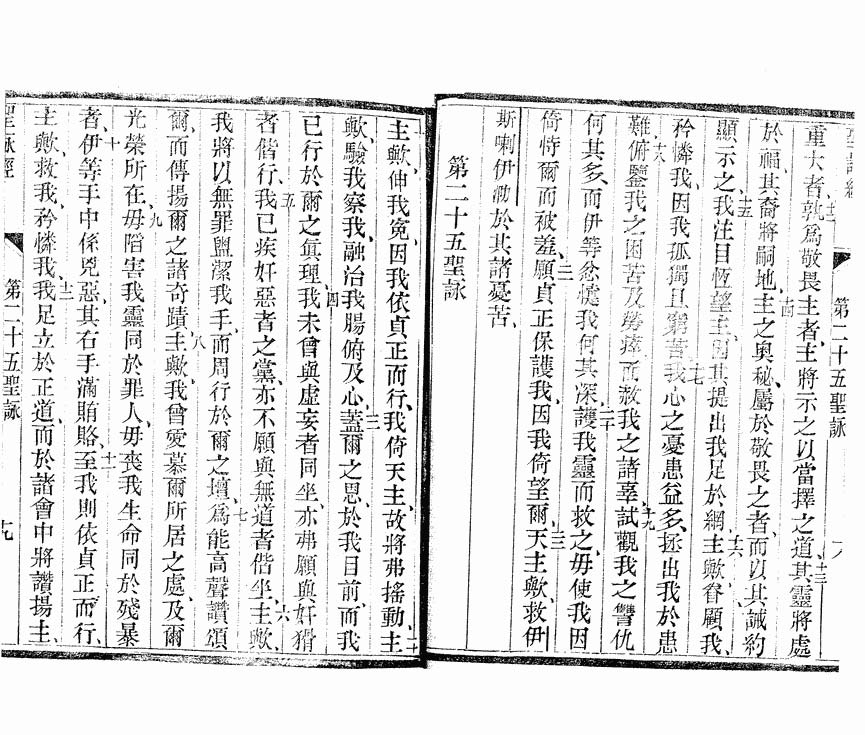 第二十五聖詠
重大者孰爲敬畏主者主將示之以當擇之道其靈將處
於福其裔將嗣地主之奧秘屬於敬畏之者而以其誡約
顯示之我注目恆望主因其提出我足於網主歟眷顧我
矜憐我因我孤獨且窮苦我心之憂患益多拯出我於患
難俯鑒我之困苦及勞瘁而赦我之諸辜試觀我之讐仇
何其多而伊等忿憾我何其深護我靈而救之毋使我因
倚恃爾而被羞願貞正保護我因我倚望爾天主歟救伊
斯喇伊泐於其諸憂苦
第二十五聖詠
主歟伸我冤因我依貞正而行我倚天主故將弗搖動主
歟驗我察我融治我腸俯及心蓋爾之恩於我目前而我
已行於爾之眞理我未曾與虛妄者同坐亦弗願與奸猾
者偕行我已疾奸惡者之黨亦不願與無道者偕坐主歟
我將以無罪盥潔我手而周行於爾之壇爲能高聲讚頌
爾而傳揚爾之諸奇蹟主歟我曾愛慕爾所居之處及爾
光榮所在毋陷害我靈同於罪人毋喪我生命同於殘暴
者伊等手中係兇惡其右手滿賄賂至我則依貞正而行
主歟救我矜憐我我足立於正道而於諸會中將讚揚主
聖詠經
第二十五聖詠
十九